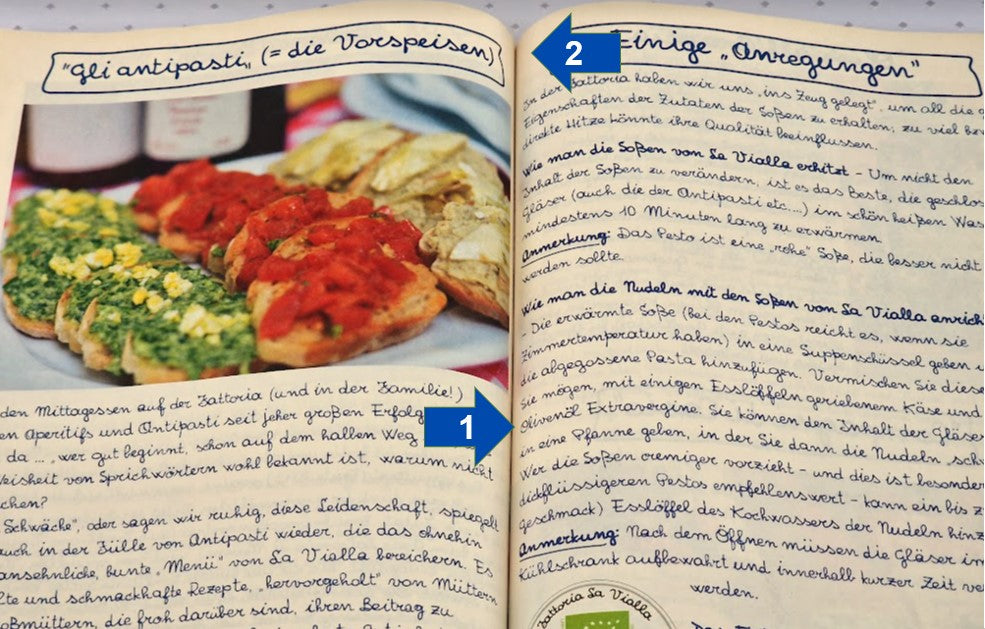 "Gli antipasti" (= die Vorspeisen)
den Mittagessen auf der Fattoria (und in der Familie!)
en Aperitifs und Antipasti seit jeher großen Erfolg
da ... „wer gut beginnt, schon auf dem halben Weg
Weisheit von Sprichwörtern wohl bekannt ist, warum nicht
chen?
Schwäche", oder sagen wir ruhig, diese Leidenschaft, spiegelt
auch in der Fülle von Antipasti wieder, die das ohnehin
ansehnliche, bunte „Menü" von La Vialla bereichern. Es
lte und schmackhafte Rezepte, „hervorgeholt" von Müttern
oßmüttern, die froh darüber sind, ihren Beitrag zu
1
2
Einige „Anregungen"
In der Fattoria haben wir uns „ins Zeug gelegt", um all die g
Eigenschaften der Zutaten der Soßen zu erhalten; zu viel bzw
direkte Hitze könnte ihre Qualität beeinflussen.
Wie man die Soßen von La Vialla erhitzt - Um nicht den
Inhalt der Soßen zu verändern, ist es das Beste, die geschlos
Gläser (auch die der Antipasti etc....) im schön heißen Was
mindestens 10 Minuten lang zu erwärmen.
Anmerkung: Das Pesto ist eine „rohe" Soße, die besser nicht
werden sollte.
Wie man die Nudeln mit den Soßen von La Vialla anrich
- Die erwärmte Soße (bei den Pestos reicht es, wenn sie
Zimmertemperatur haben) in eine Suppenschüssel geben u
die abgegossene Pasta hinzufügen. Vermischen Sie diese
Sie mögen, mit einigen Esslöffeln geriebenem Käse und
Olivenöl Extravergine. Sie können den Inhalt der Gläser
in eine Pfanne geben, in der Sie dann die Nudeln „sch
Wer die Soßen cremiger vorzieht - und dies ist besonder
dickflüssigeren Pestos empfehlenswert - kann ein bis z
Geschmack) Esslöffel des Kochwassers der Nudeln hinz
Anmerkung: Nach dem Öffnen müssen die Gläser im
Kühlschrank aufbewahrt und innerhalb kurzer Zeit ve
werden.
Fattoria La Vialla